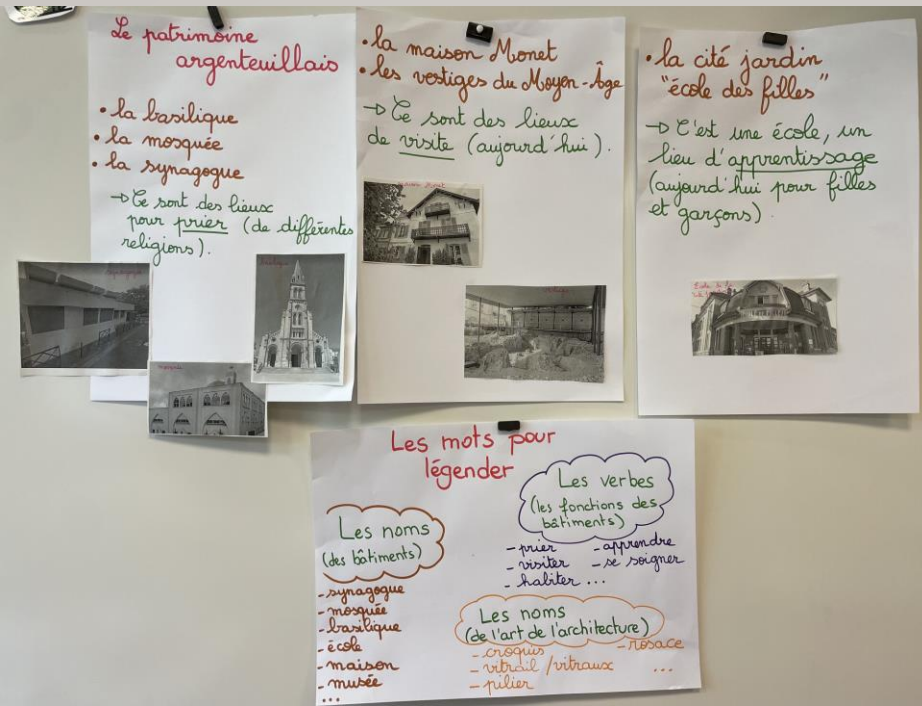 Le patrimoine
argenteuillais
• la basilique
• la mosquée
• la synagogue
→ Ce sont des lieux
pour prier (de différentes
religions).
synagogue
basilique
mosquée
• la maison Monet
• les vestiges du Moyen-Âge
→ Ce sont des lieux
de visite (aujourd'hui).
maison Monet
• la cité jardin
"école des filles"
→ C'est une école, un
lieu d'apprentissage
(aujourd'hui pour filles
et garçons).
École de la
Les mots pour
légender
Les noms
(des bâtiments)
- synagogue
- mosquée
- basilique
- école
- maison
- musée
...
Les verbes
(les fonctions des
bâtiments)
- prier - apprendre
- visiter - se soigner
- habiter ...
Les noms
(de l'art de l'architecture)
- croquis - rosace
- vitrail / vitraux ...
- pilier